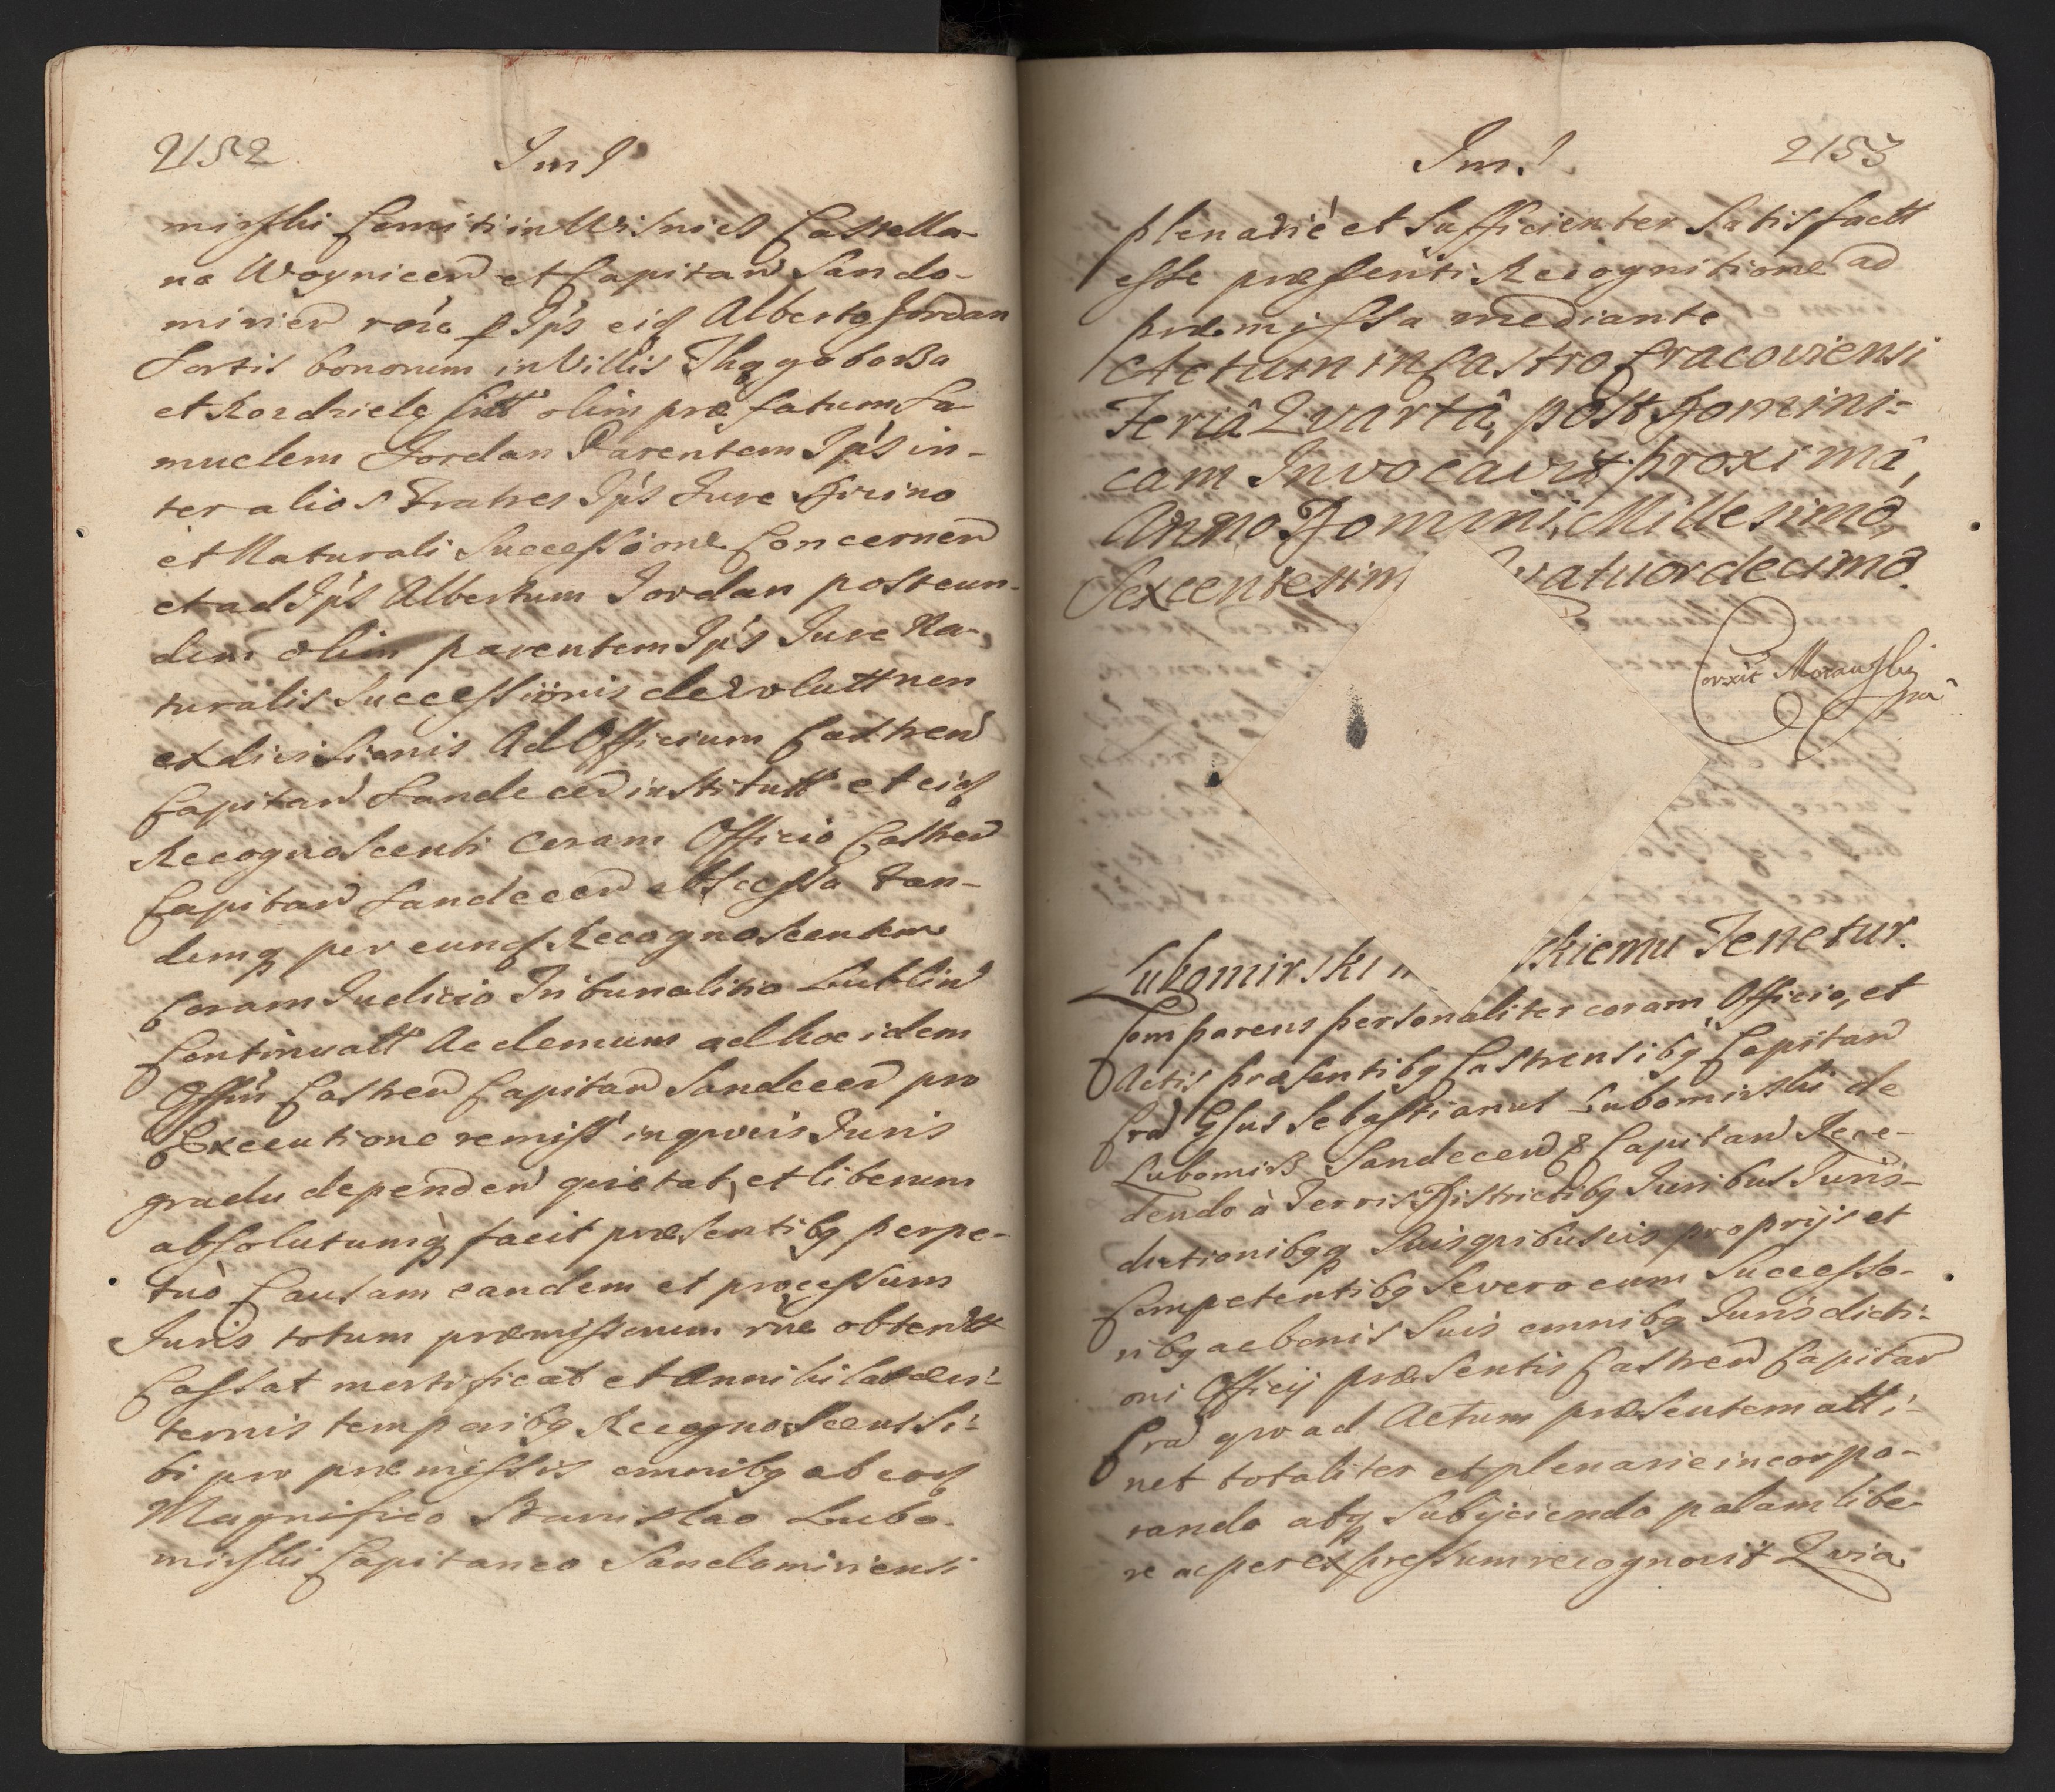 2152
Im?
mirski Comiti in Wisnicz Castella-
no Woynicen et Capitan Sando-
mirien roe p Ips eid Alberto Jordan
Sortis bonorum in Villis
et Rozdziele olim præfatum Sa-
muelem Jordan Parentem Ips in-
ter alios Fratres Ips Jure Divino
et Naturali Successione Concernen
et ad Ips Albertum Jordan post eun-
dem olim parentem Ips Jure Na-
turalis Successionis devolutt nen
ex divisionis Ad Officium Castren
Capitan Sandecen institutt et eid
Recognoscenti coram Officio Castren
Capitan Sandecen Tan-
demq per eund Recognoscentem
Coram Judicio Tribunalitio Lublin
Continuatt Ac demum ad hoc idem
Offim Castren Capitan Sandecen pro
Executione remiss in qvovis Juris
gradu dependen qvietat, et liberum
absolutumq facit præsentibq perpe-
tuò Causam eandem et processum
Juris totum præmissorum rne obtent
Cassat mortificat et Annihilat ævi-
ternis temporibq Recognoscens Si-
bi pro præmissis omnibq ab eod
Magnifico Stanislao Lubo-
mirski Capitaneo Sandomiriensi
Im?
2153
plenarié et Sufficienter Satisfactt
esse præsenti Recognitione ad
præmissa mediante
Actum in Castro Cracoviensi
Feriâ Qvartâ, post Domini-
cam Invocavit proximâ,
Anno Domini, Millesimô,
Sexcentesim qvatuordecimô.
Corxit Morawski
mp
Lubomirski skiemu Tenetur.
Comparens personaliter coram Officio, et
Actis præsentibq Castrensibq Capitan
Cra Gsus Sebastianus Lubomirski de
Lubomiß Sandecen & Capitan Rece-
dendo à Terris Districtibq Juribus Juris-
dictionibqq Suis qvibusvis proprijs et
Competentibq Se vero cum Successo-
ribq ac bonis Suis omnibq Jurisdicti-
oni Officij præsentis Castren Capitan
Cra qvo ad Actum præsentem atti-
net totaliter et plenarie incorpo-
rando atq Subijciendo palam libe-
re ac per expressum recognovit Qvia